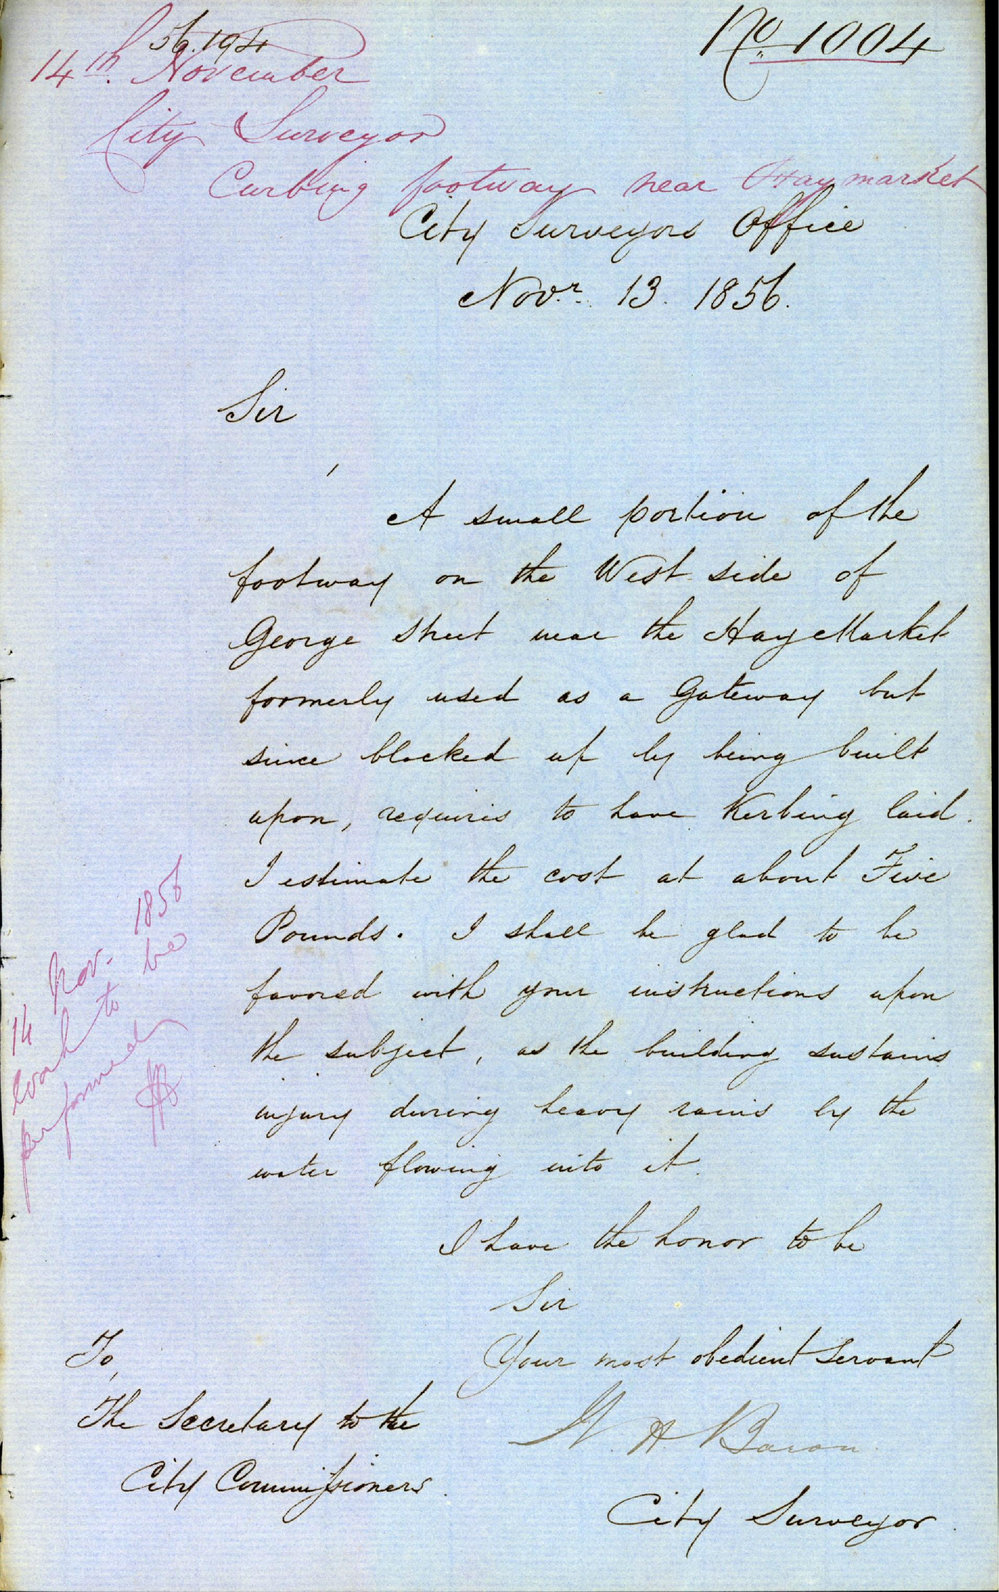 56.1921
No. 1004
14th. November
City Surveyor
Curbing footway near Haymarket
City Surveyors Office
Novr. 13. 1856.
Sir
A small portion of the
footway on the West side of
George Street near the Hay Market
formerly used as a Gateway but
since blocked up by being built
upon, requires to have Kerbing laid.
I estimate the cost at about Five
Pounds. I shall be glad to be
favored with your instructions upon
the subject, as the building sustains
injury during heavy rains by the
water flowing into it.
I have the honor to be
Sir
Your most obedient Servant
W. H Baron
City Surveyor.
To,
The Secretary to the
City Commissioners.
14 Nov. 1856
Work to be
performed